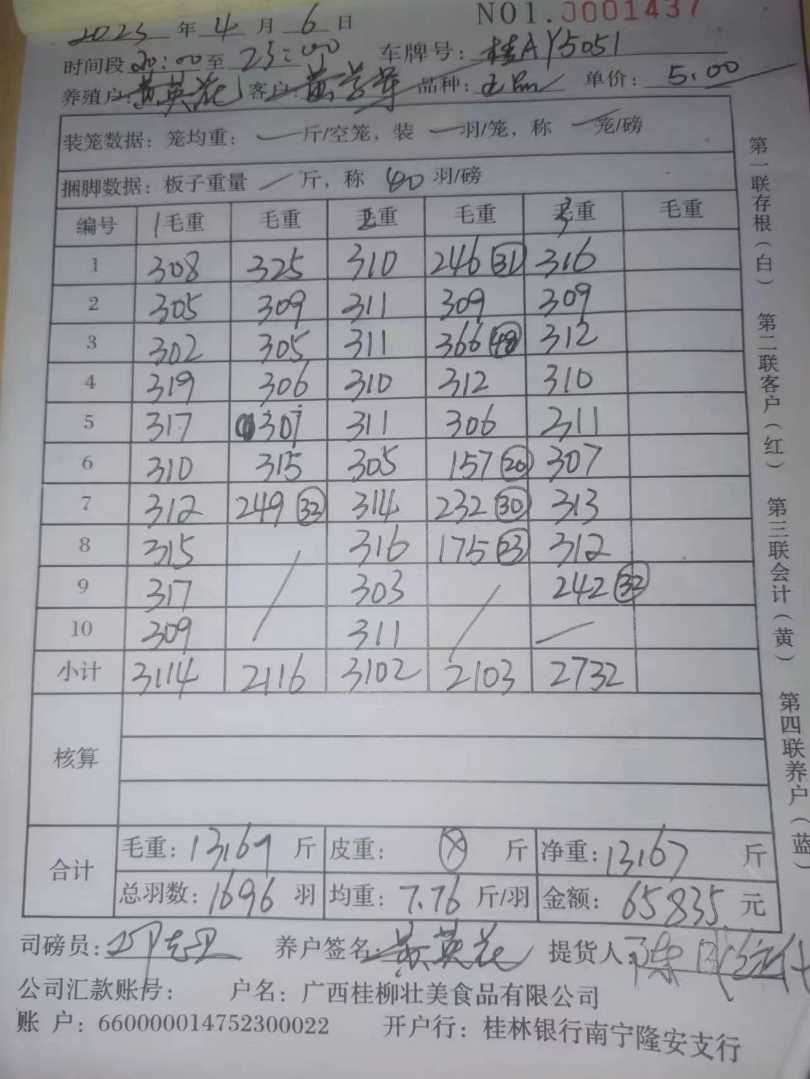 2023 年 4 月 6 日 NO1.0001437
时间段 20:00 至 23:00 车牌号: 桂AY5051
养殖户: 黄英花 客户: 品种: 单价: 5.00
装笼数据: 笼均重: — 斤/空笼, 装 — 羽/笼, 称 — 笼/磅
捆脚数据: 板子重量 / 斤, 称 40 羽/磅
编号 1毛重 毛重 2毛重 毛重 3毛重 毛重
1 308 325 310 246 (31) 316
2 305 309 311 309 309
3 302 305 311 366 (48) 312
4 319 306 310 312 310
5 317 307 311 306 311
6 310 315 305 157 (20) 307
7 312 249 (32) 314 232 (30) 313
8 315 316 175 (23) 312
9 317 / 303 / 242 (32)
10 309 311 —
小计 3114 2116 3102 2103 2732
核算
合计 毛重: 13167 斤 皮重: 斤 净重: 13167 斤
总羽数: 1696 羽 均重: 7.76 斤/羽 金额: 65835 元
司磅员: 养户签名: 黄英花 提货人:
公司汇款账号: 户名: 广西桂柳壮美食品有限公司
账 户: 660000014752300022 开户行: 桂林银行南宁隆安支行
第一联存根(白) 第二联客户(红) 第三联会计(黄) 第四联养户(蓝)